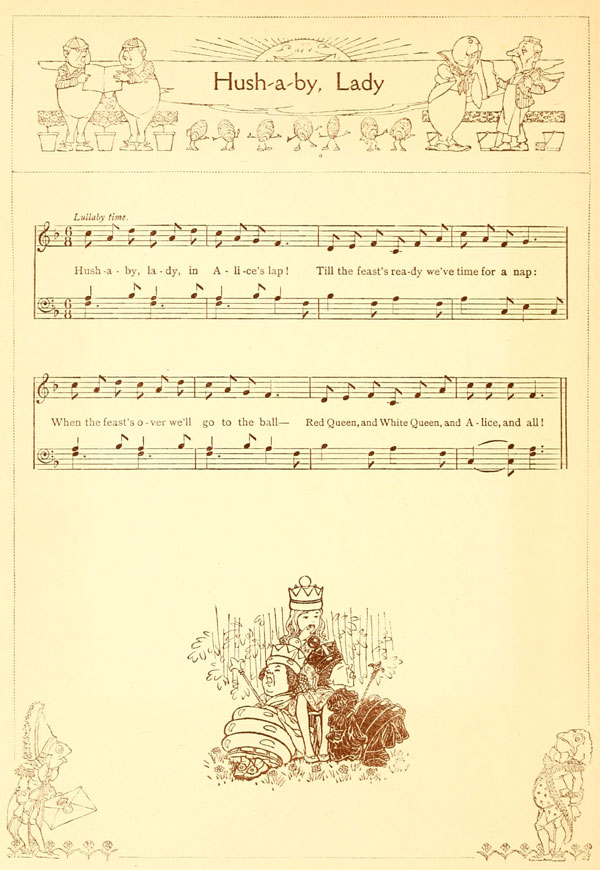 Hush-a-by, Lady
Lullaby time.
Hush-a-by, la-dy, in A-li-ce's lap! Till the feast's rea-dy we've time for a nap:
When the feast's o-ver we'll go to the ball— Red Queen, and White Queen, and A-lice, and all!